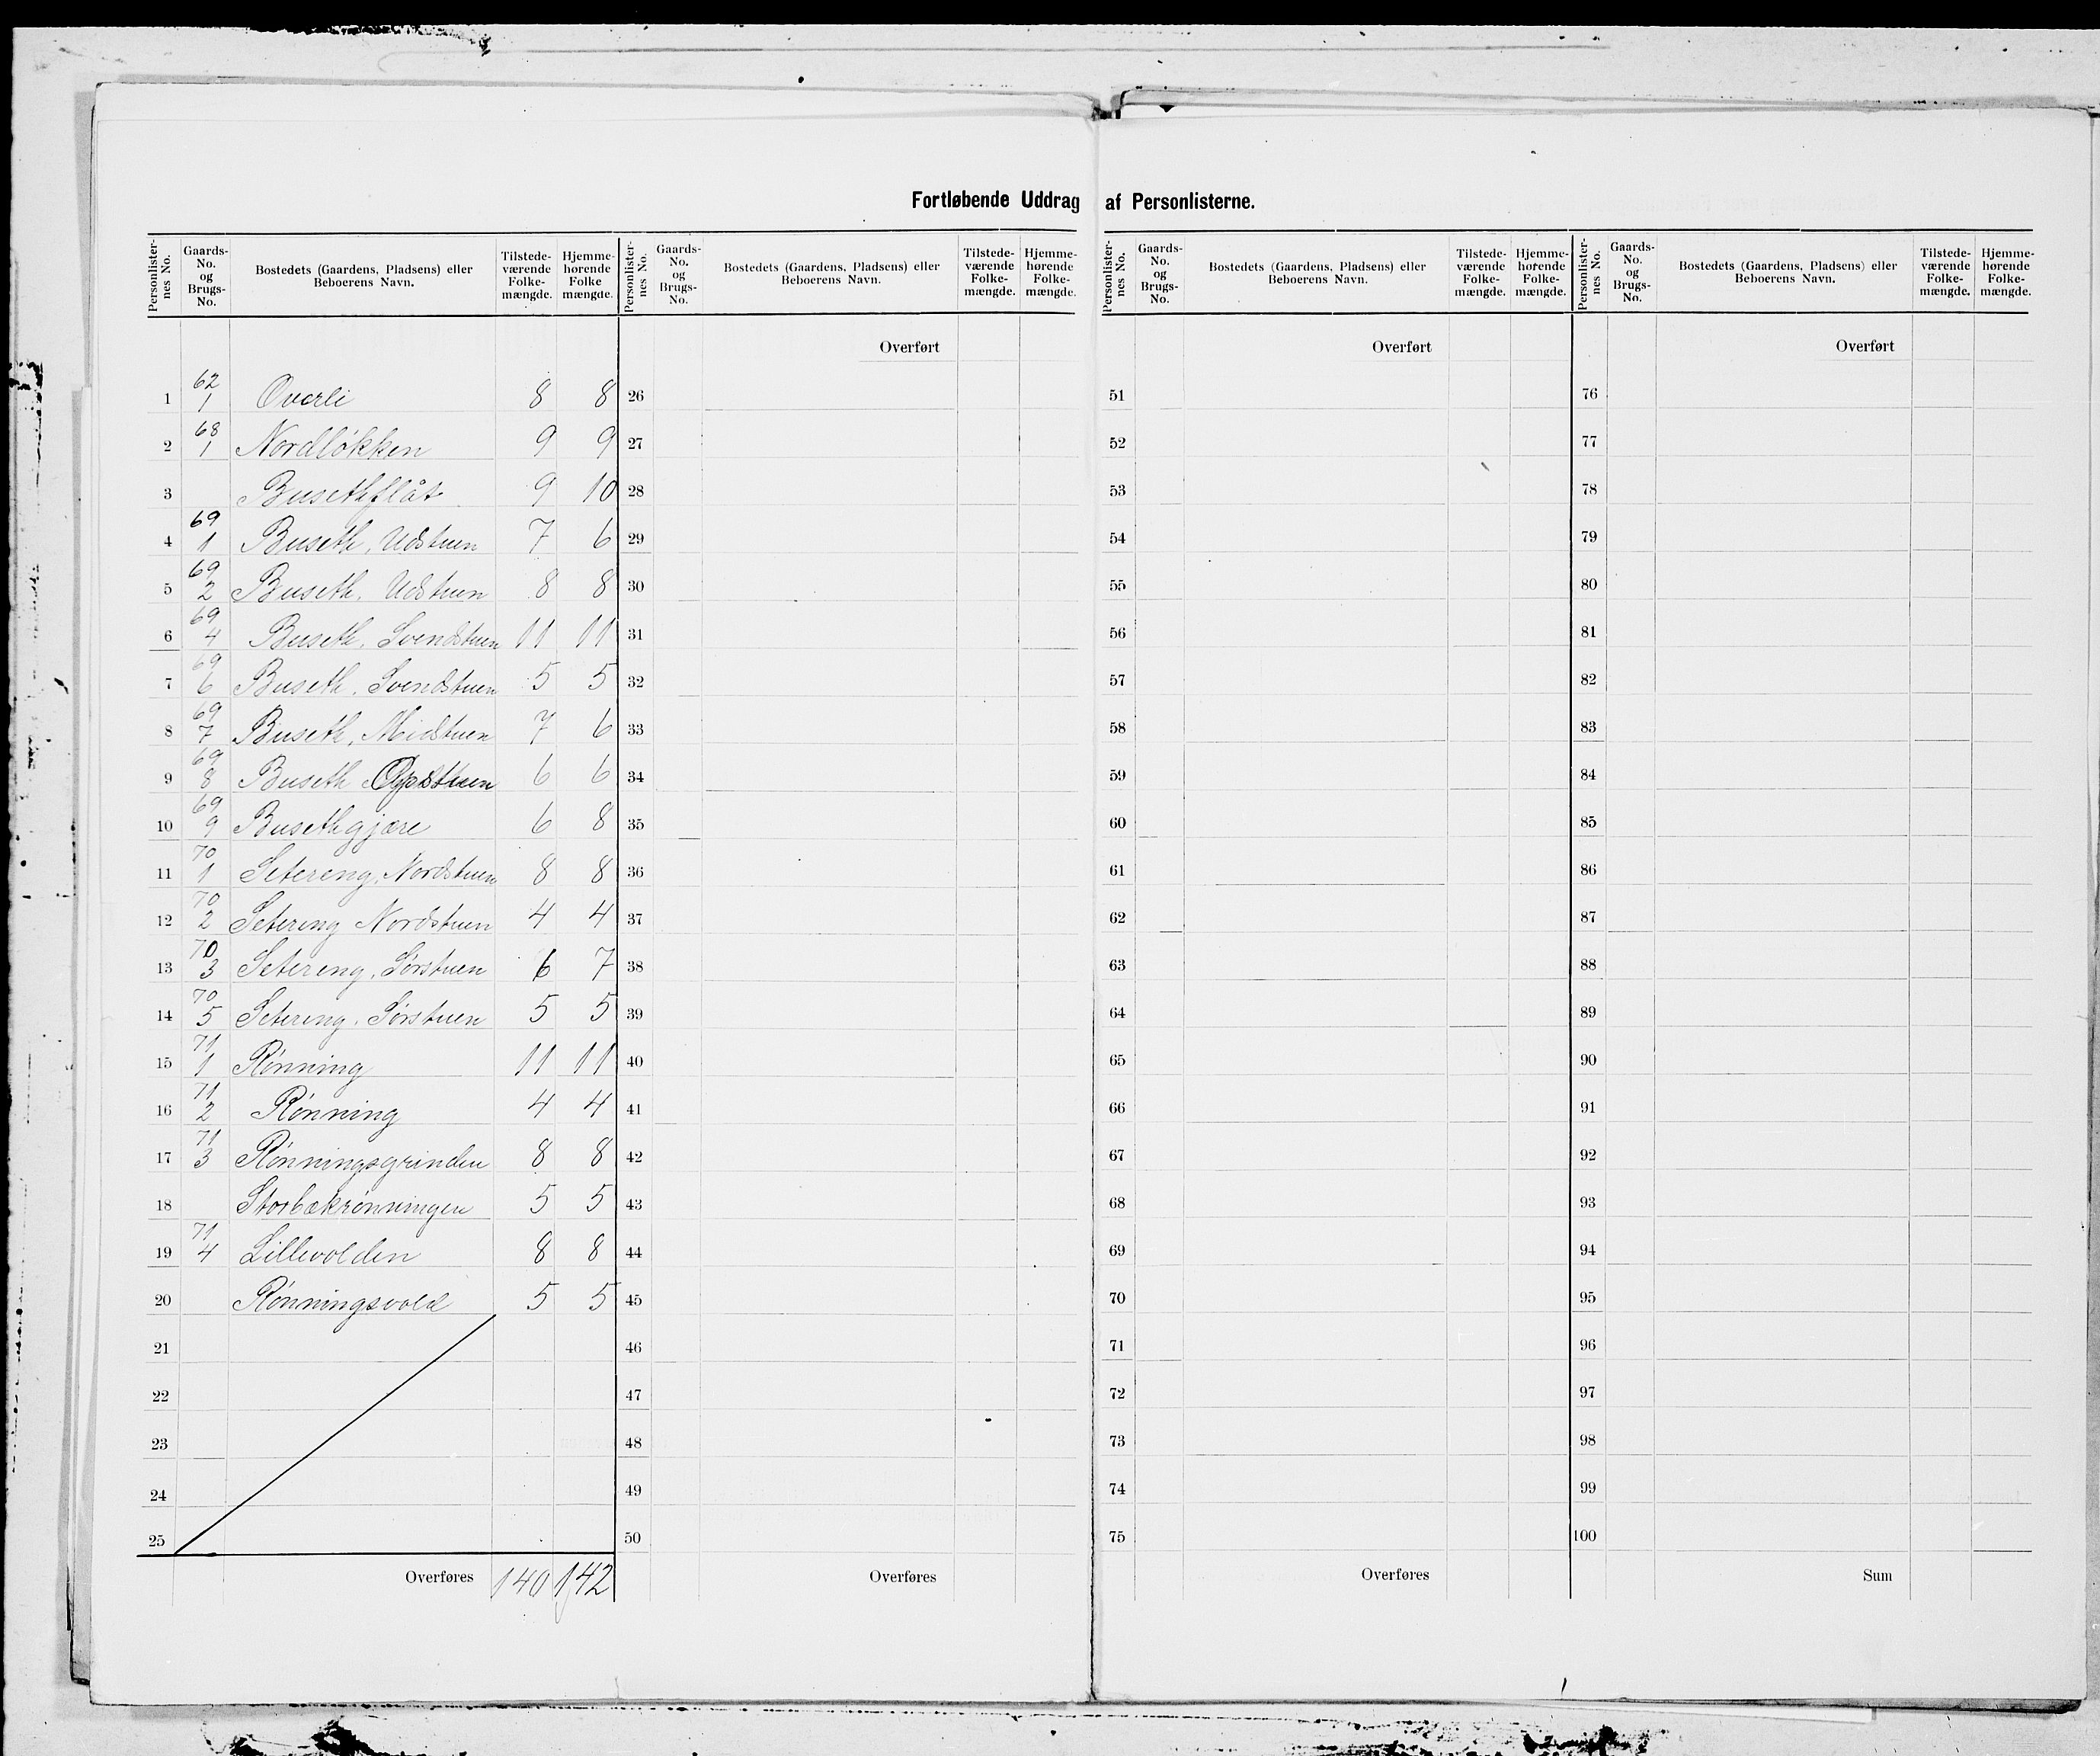 Fortløbende Uddrag af Personlisterne.
Personlister-nes No. Gaards-No. og Brugs-No. Bostedets (Gaardens, Pladsens) eller Beboerens Navn. Tilstede-værende Folke-mængde. Hjemme-hørende Folke mængde.
Personlister-nes No. Gaards-No. og Brugs-No. Bostedets (Gaardens, Pladsens) eller Beboerens Navn. Tilstede-værende Folke-mængde. Hjemme-hørende Folke-mængde.
Personlister-nes No. Gaards-No. og Brugs-No. Bostedets (Gaardens, Pladsens) eller Beboerens Navn. Tilstede-værende Folke-mængde. Hjemme-hørende Folke-mængde.
Personlister-nes No. Gaards-No. og Brugs-No. Bostedets (Gaardens, Pladsens) eller Beboerens Navn. Tilstede-værende Folke-mængde. Hjemme-hørende Folke-mængde.
Overført Overført Overført
1 62/1 Overli 8 8 26 51 76
2 68/1 Nordløkken 9 9 27 52 77
3 Busethflåt 9 10 28 53 78
4 69/1 Buseth, Udstuen 7 6 29 54 79
5 69/2 Buseth, Udstuen 8 8 30 55 80
6 69/4 Buseth, Svendstuen 11 11 31 56 81
7 69/6 Buseth, Svendstuen 5 5 32 57 82
8 69/7 Buseth, Midstuen 7 6 33 58 83
9 69/8 Buseth Opstuen 6 6 34 59 84
10 69/9 Busethgjære 6 8 35 60 85
11 70/1 Setereng, Nordstuen 8 8 36 61 86
12 70/2 Setereng Nordstuen 4 4 37 62 87
13 70/3 Setereng, Sørstuen 6 7 38 63 88
14 70/5 Setereng, Sørstuen 5 5 39 64 89
15 71/1 Rønning 11 11 40 65 90
16 71/2 Rønning 4 4 41 66 91
17 71/3 Rønningsgrinden 8 8 42 67 92
18 Storbækrønningen 5 5 43 68 93
19 71/4 Lillevolden 8 8 44 69 94
20 Rønningsvold 5 5 45 70 95
21 46 71 96
22 47 72 97
23 48 73 98
24 49 74 99
25 50 75 100
Overføres 140 142 Overføres Overføres Sum